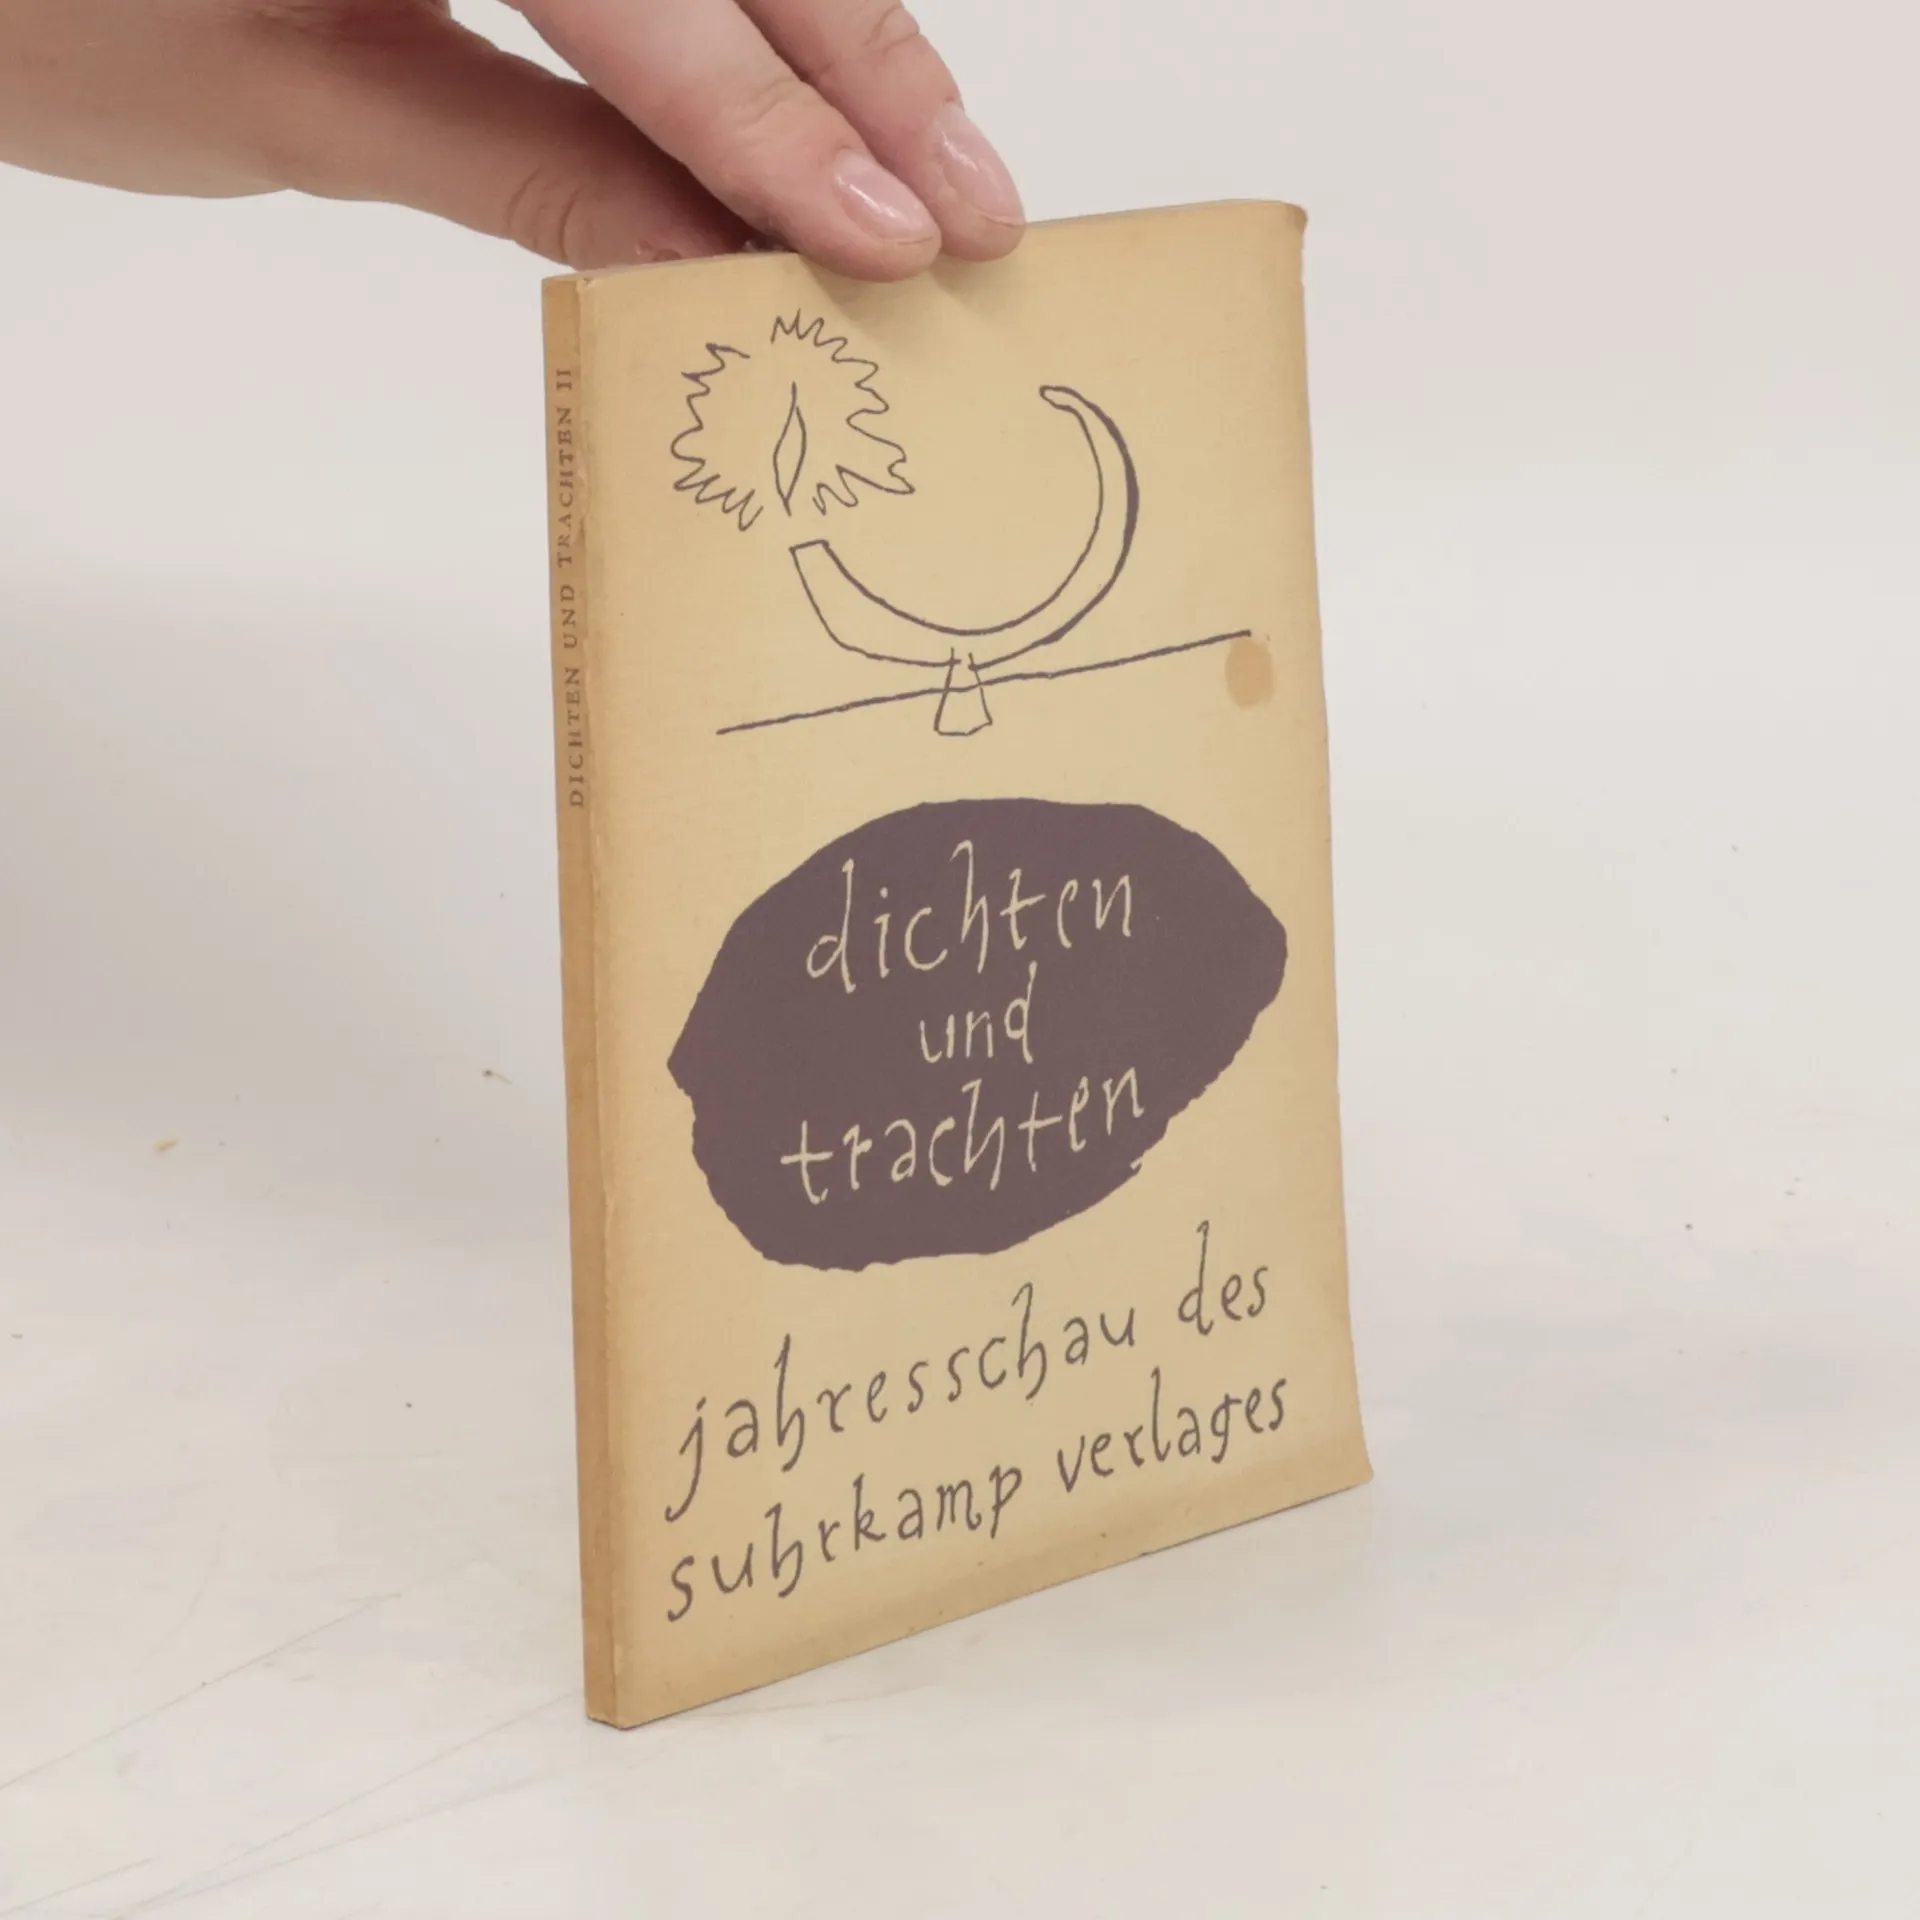 DICHTEN UND TRACHTEN II
dichten
und
trachten
jahresschau des
suhrkamp verlages